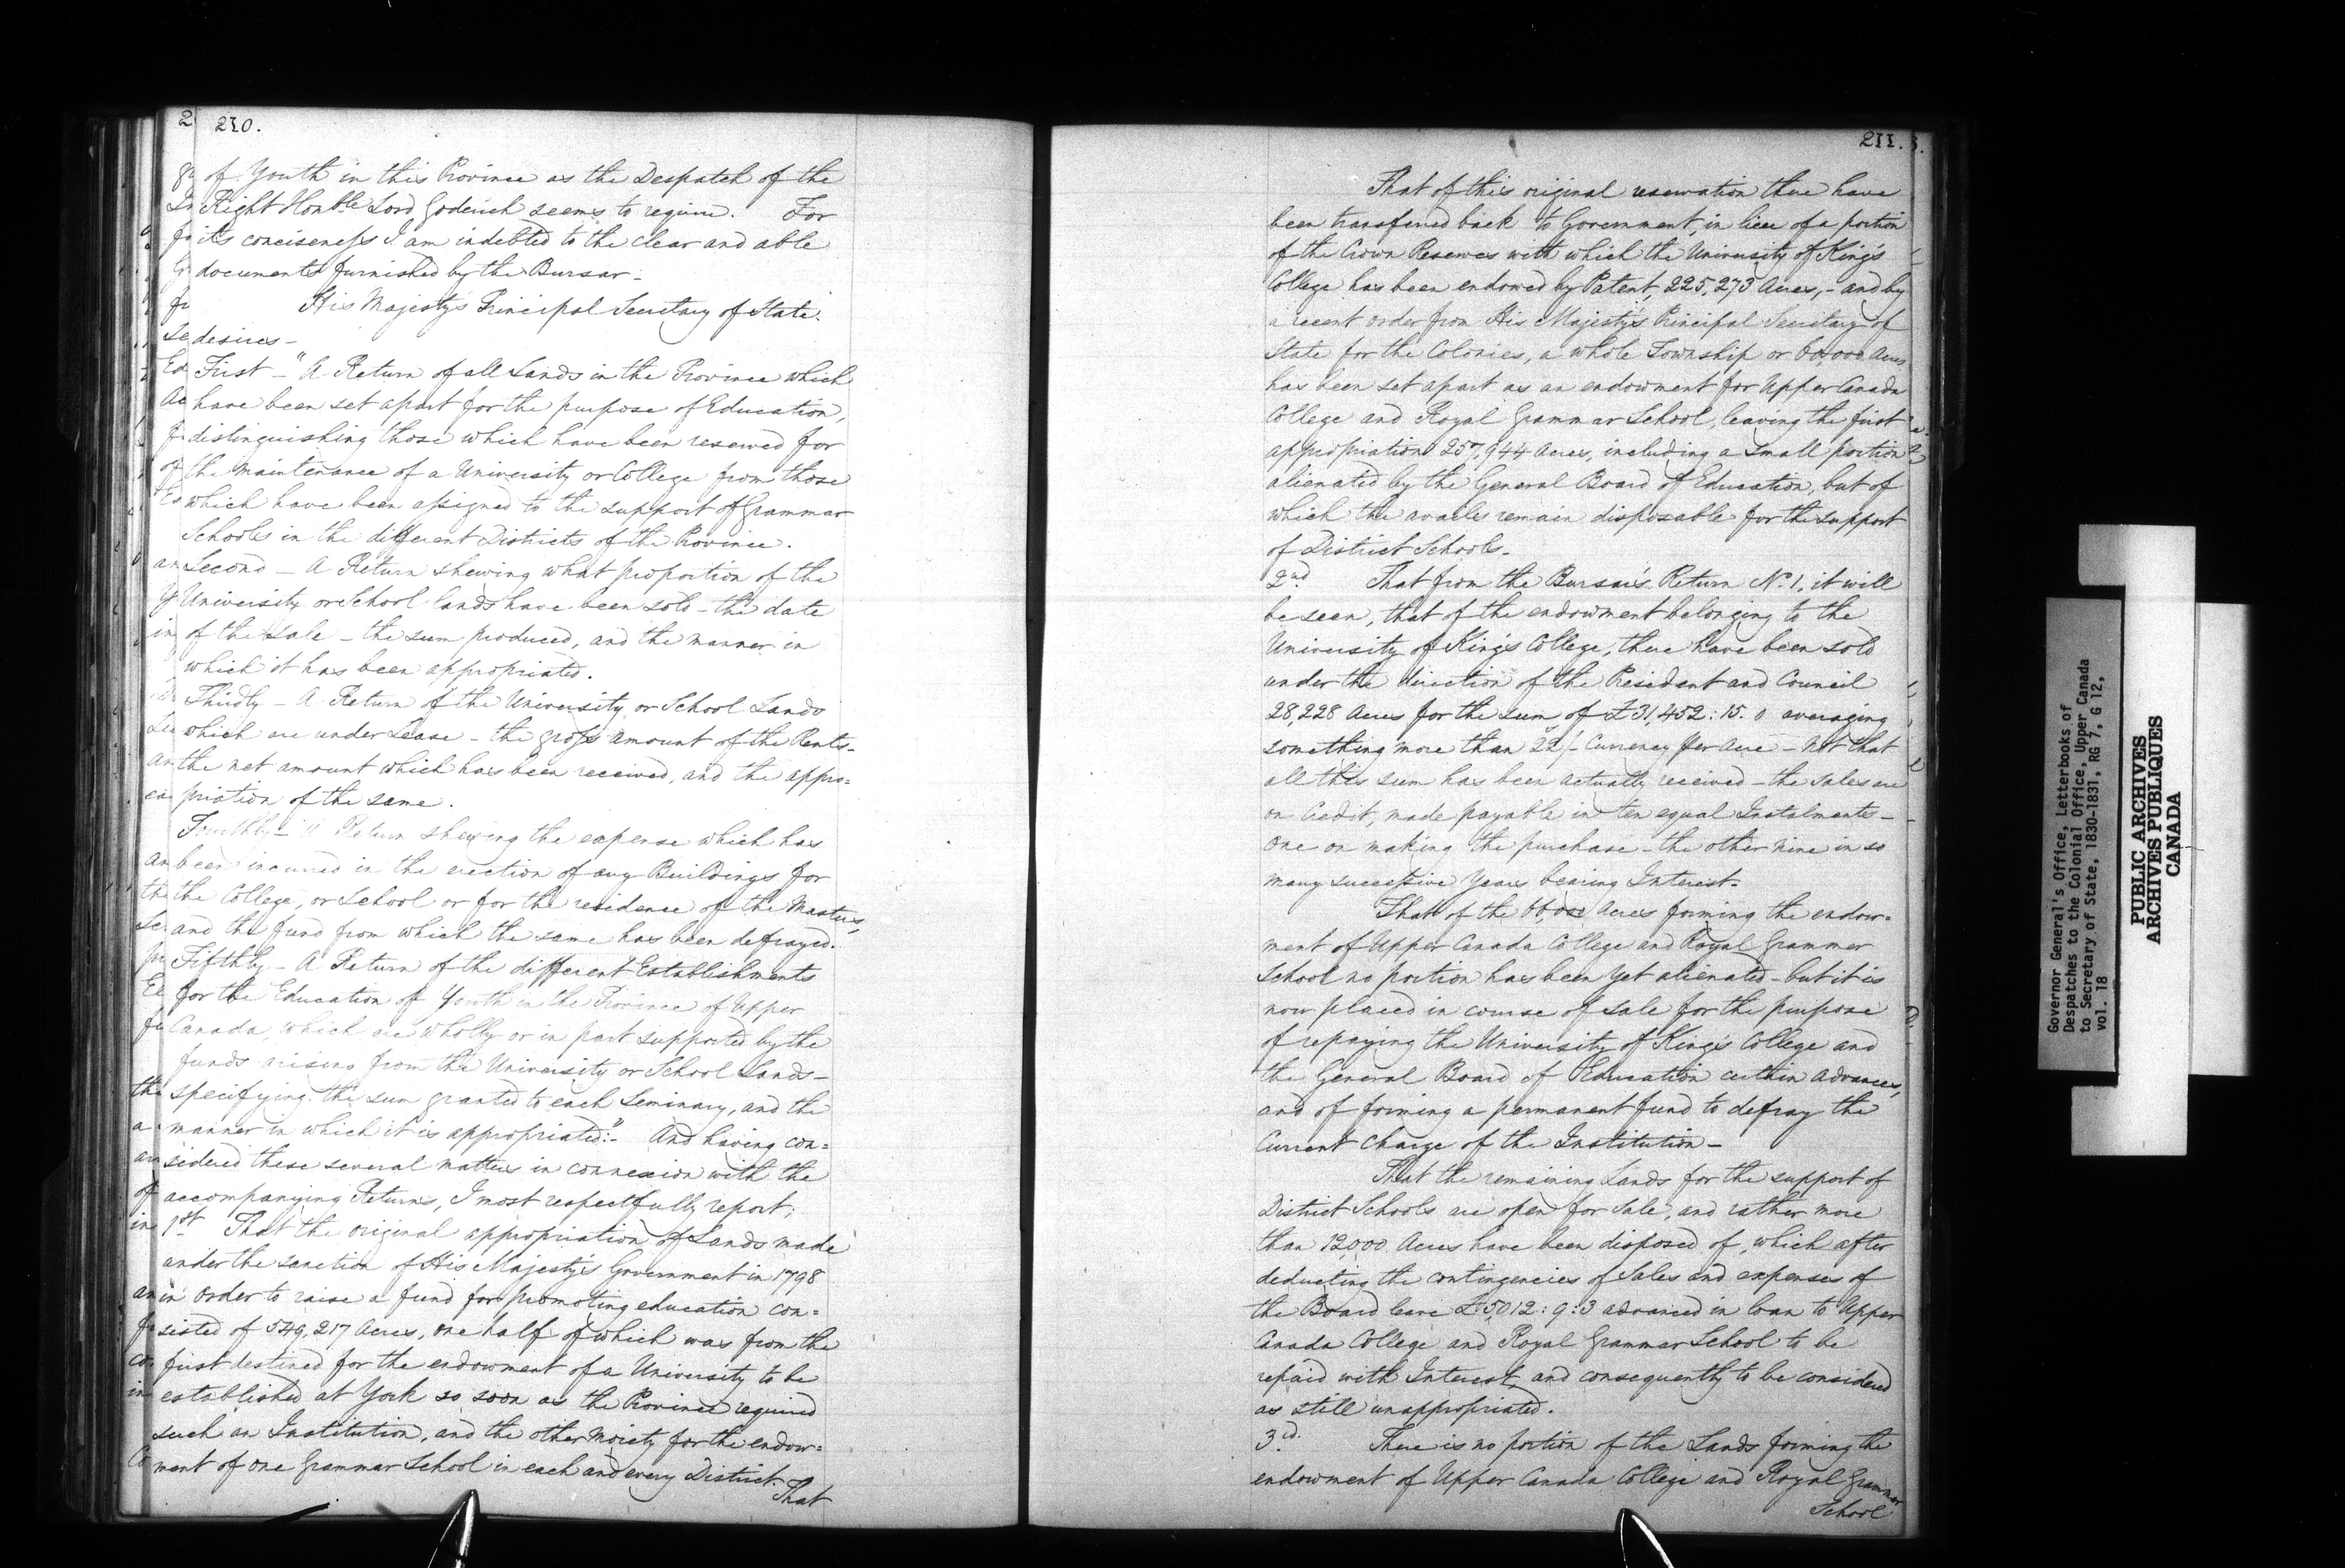 210.
of Youth in this Province as the Despatch of the
Right Honble Lord Goderich seems to require. For
its conciseness I am indebted to the clear and able
documents furnished by the Bursar –
His Majesty's Principal Secretary of State
desires –
First – "A Return of all Lands in the Province which
have been set apart for the purpose of Education,
distinguishing those which have been reserved for
the maintenance of a University or College from those
which have been assigned to the support of Grammar
Schools in the different Districts of the Province.
Second – A Return shewing what proportion of the
University or School lands have been sold – the date
of the sale – the sum produced, and the manner in
which it has been appropriated.
Thirdly – A Return of the University or School Lands
which are under Lease – the gross amount of the Rents –
the net amount which has been received, and the appro=
priation of the same.
Fourthly – A Return shewing the expense which has
been incurred in the erection of any Buildings for
the College, or School or for the residence of the Masters,
and the fund from which the same has been defrayed.
Fifthly – A Return of the different Establishments
for the Education of Youth in the Province of Upper
Canada, which are wholly or in part supported by the
funds arising from the University or School Lands –
specifying the sum granted to each Seminary, and the
manner in which it is appropriated:" – And having con=
sidered these several matters in connexion with the
accompanying Returns, I most respectfully report;
1st That the original appropriation of Lands made
under the sanction of His Majesty's Government in 1798
in order to raise a fund for promoting education con=
sisted of 549,217 Acres, one half of which was from the
first destined for the endowment of a University to be
established at York so soon as the Province required
such an Institution, and the other moiety for the endow=
ment of one Grammar School in each and every District.
That
211.
That of this original reservation there have
been transferred back to Government, in lieu of a portion
of the Crown Reserves with which the University of King's
College has been endowed by Patent, 225,273 Acres, – and by
a recent order from His Majesty's Principal Secretary of
State for the Colonies, a whole Township or 66,000 Acres
has been set apart as an endowment for Upper Canada
College and Royal Grammar School, leaving the first
appropriation 257,944 Acres, including a small portion
alienated by the General Board of Education, but of
which the avails remain disposable for the support
of District Schools.
2nd That from the Bursar's Return No. 1, it will
be seen, that of the endowment belonging to the
University of King's College, there have been sold
under the direction of the President and Council
28,228 Acres for the sum of £31,452:15.0 averaging
something more than 22/- Currency per Acre – Not that
all this sum has been actually received – the sales are
on Credit, made payable in ten equal Instalments –
one on making the purchase – the other nine in so
many successive Years bearing Interest.
That of the 66,000 Acres forming the endow=
ment of Upper Canada College and Royal Grammar
School no portion has been yet alienated – but it is
now placed in course of sale for the purpose
of repaying the University of King's College and
the General Board of Education certain advances,
and of forming a permanent fund to defray the
Current Charge of the Institution –
That the remaining Lands for the support of
District Schools are open for Sale, and rather more
than 12,000 Acres have been disposed of, which after
deducting the contingencies of Sales and expenses of
the Board leave £5012:9:3 advanced in loan to Upper
Canada College and Royal Grammar School to be
repaid with Interest, and consequently to be considered
as still unappropriated.
3rd. There is no portion of the Lands forming the
endowment of Upper Canada College and Royal Grammar
School
Governor General's Office, Letterbooks of
Despatches to the Colonial Office, Upper Canada
to Secretary of State, 1830-1831, RG 7, G 12,
vol. 18
PUBLIC ARCHIVES
ARCHIVES PUBLIQUES
CANADA